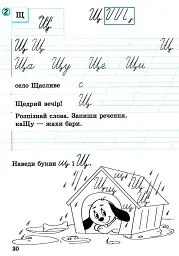 2 Щ Щ Щ
Щ
Щ Щ
Ща Щу Ще Щи
село Щасливе с
Щедрий вечір! Щ
Розпізнай слова. Запиши речення.
каЩу — жахи бари.
Наведи букви Щ і Щ.
30